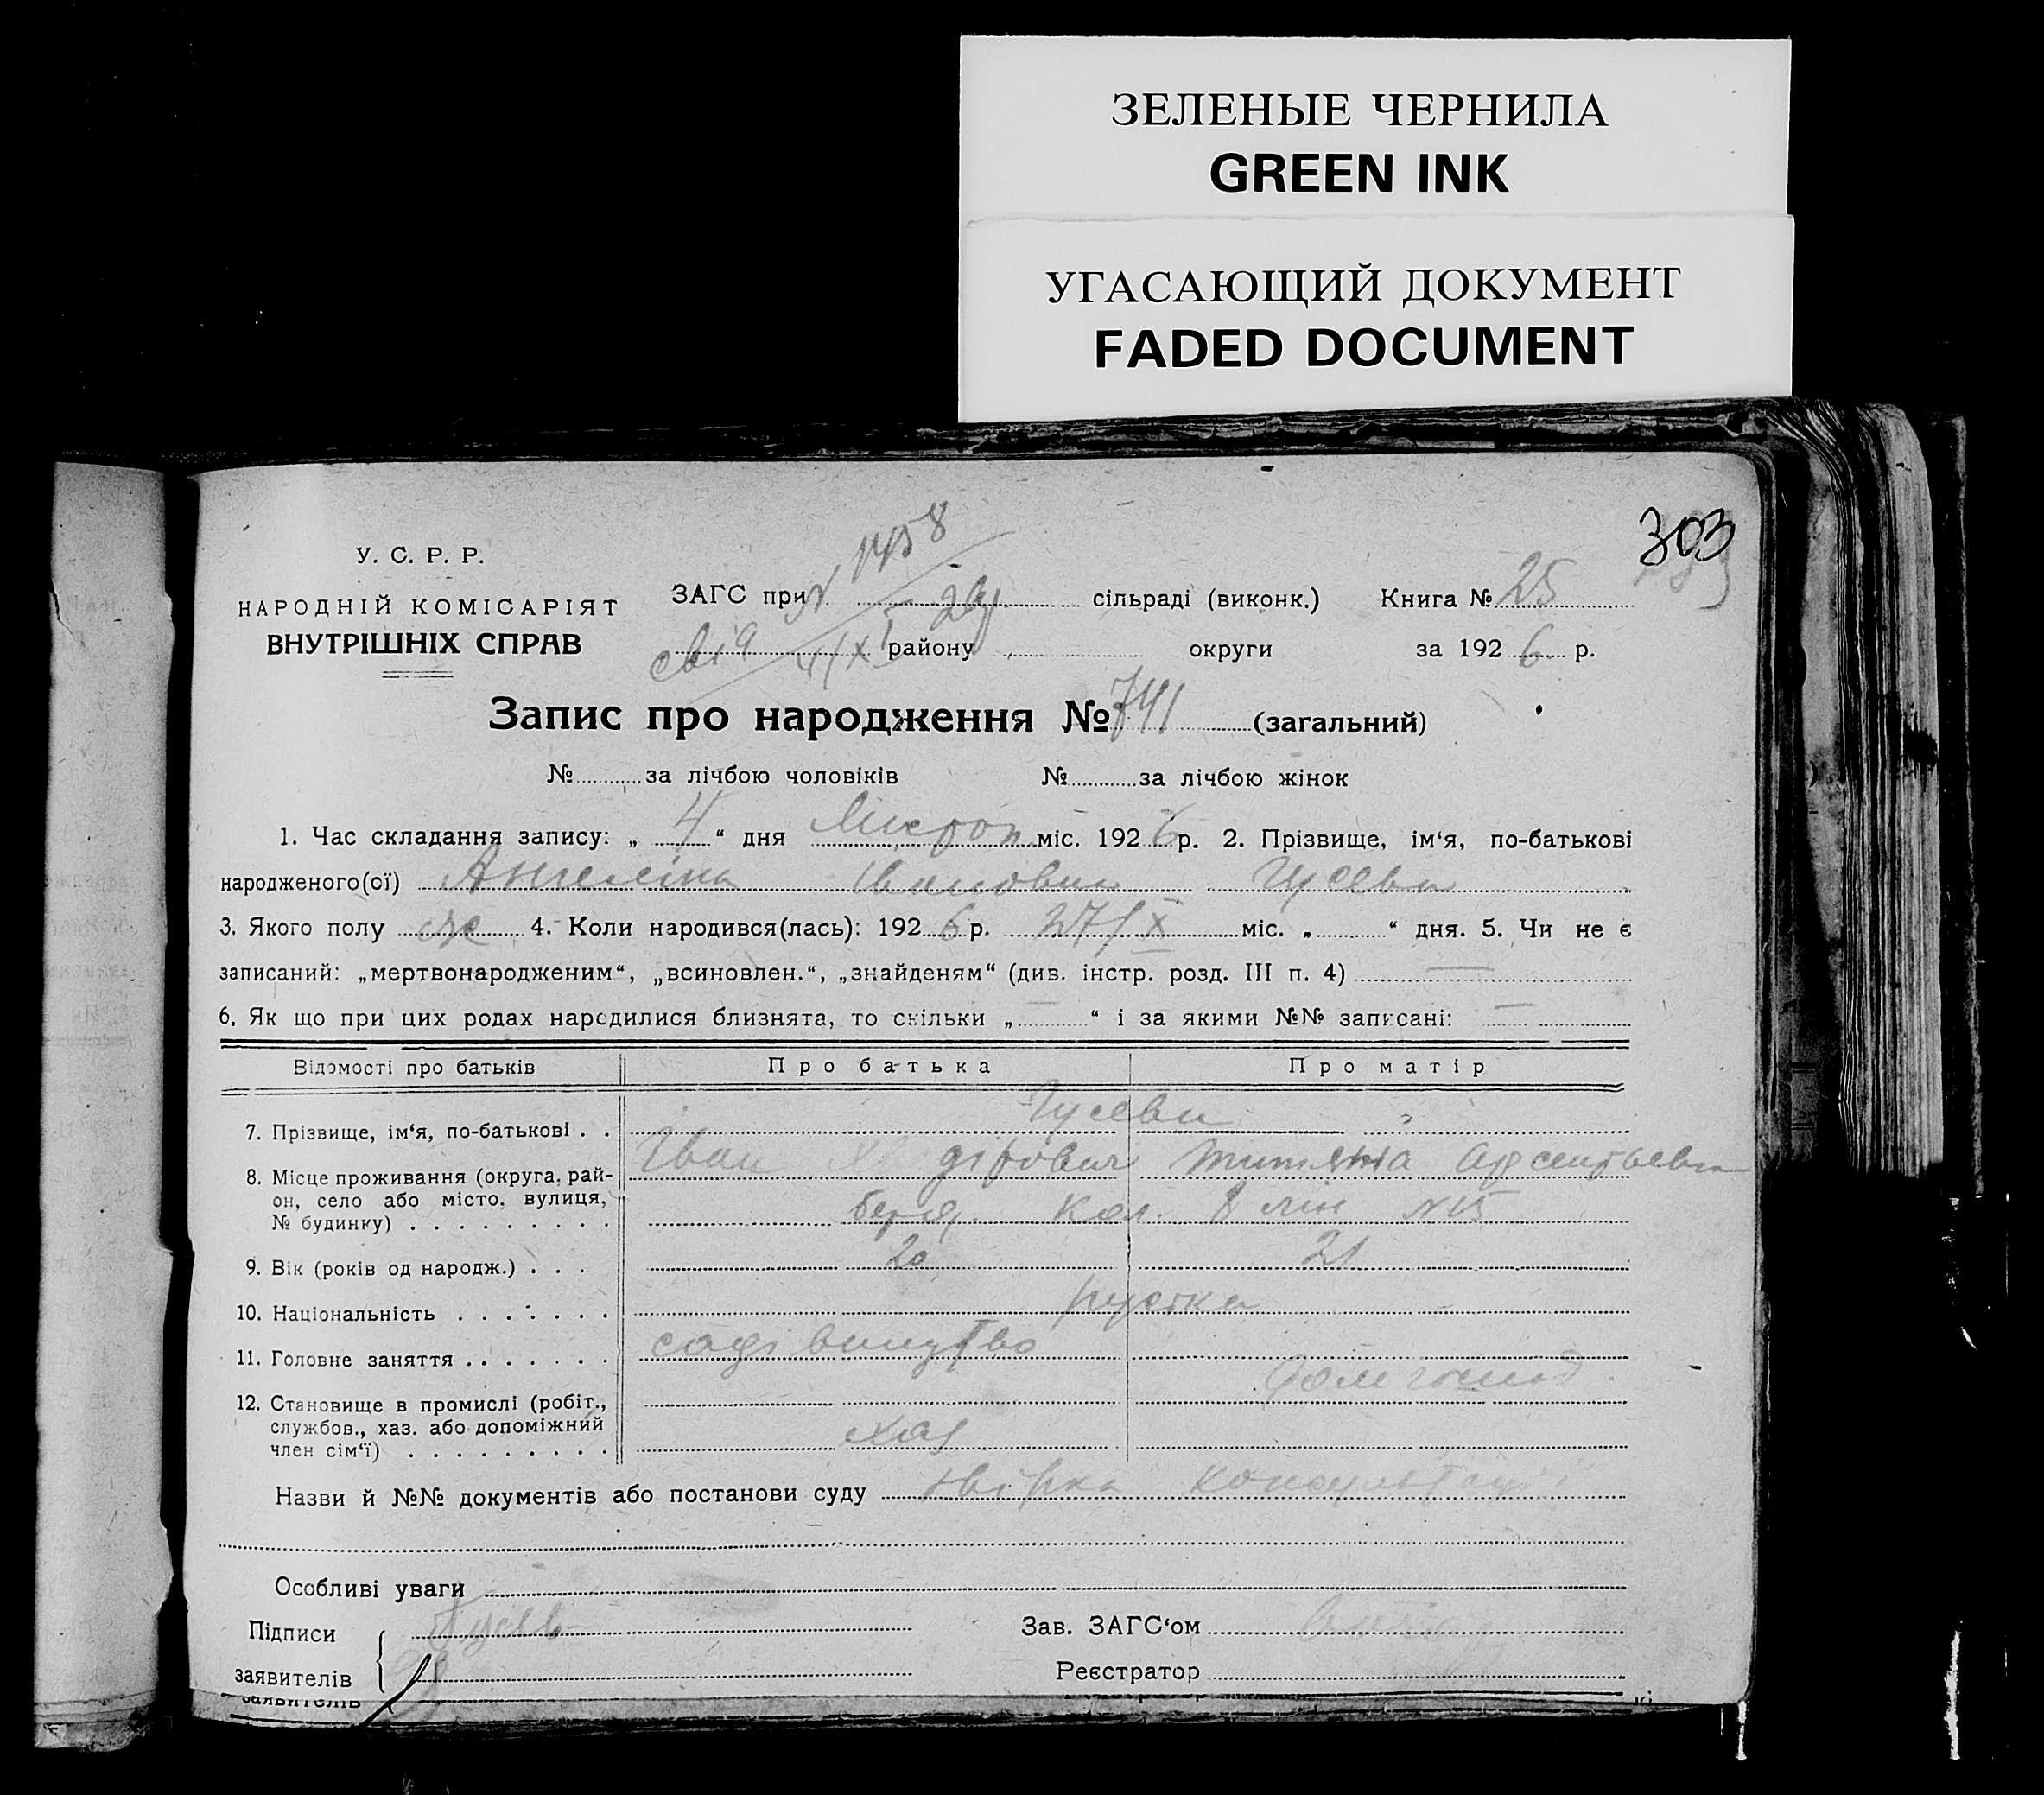 ЗЕЛЕНЫЕ ЧЕРНИЛА
GREEN INK
УГАСАЮЩИЙ ДОКУМЕНТ
FADED DOCUMENT
303
У. С. Р. Р.
НАРОДНІЙ КОМІСАРІЯТ
ВНУТРІШНІХ СПРАВ
1458
ЗАГС при сільраді (виконк.) Книга № 25
району округи за 1926 р.
Запис про народження № 741 (загальний)
№ за лічбою чоловіків № за лічбою жінок
1. Час складання запису: „ 4 “ дня міс. 1926 р. 2. Прізвище, ім‘я, по-батькові
народженого(ої) Ангеліна Івановна Гусева
3. Якого полу 4. Коли народився(лась): 1926 р. 27/X міс. „ “ дня. 5. Чи не є
записаний: „мертвонародженим“, „всиновлен.“, „знайденям“ (див. інстр. розд. III п. 4) —
6. Як що при цих родах народилися близнята, то скільки „ — “ і за якими №№ записані: —
Відомості про батьків Про батька Про матір
Гусеви
7. Прізвище, ім‘я, по-батькові . .
Іван Арсентьевна
8. Місце проживання (округа, рай-
он, село або місто, вулиця,
№ будинку) Кол. 8 лін №15
9. Вік (років од народж.) . . . 20 21
10. Національність
11. Головне заняття садівництво
12. Становище в промислі (робіт.,
службов., хаз. або допоміжний
член сім‘ї) хаз
Назви й №№ документів або постанови суду
Особливі уваги
Підписи Гусев Зав. ЗАГС‘ом
заявителів Реєстратор